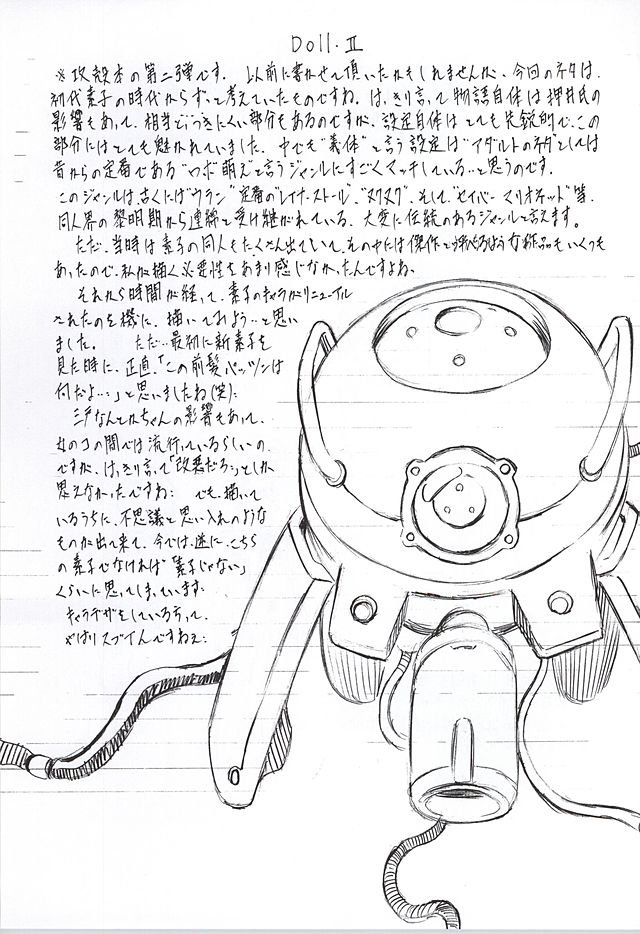 Doll.Ⅱ
※攻殻本の第二弾です。以前に書かせて頂いたかもしれませんが、今回のネタは、
初代素子の時代からずっと考えていたものですね。はっきり言って物語自体は押井氏の
影響もあって、相当とっつきにくい部分もあるのですが、設定自体はとても先鋭的で、この
部分にはとても魅かれていました。中でも"義体"と言う設定は"アダルトのネタ"としては
昔からの定番である"ロボ萌え"と言うジャンルにすごくマッチしている…と思うのです。
このジャンルは、古くには"ウラン"定番の"レイナ・ストール"、"ヌクヌク"、そして、"セイバーマリオネット"等、
同人界の黎明期から連綿と受け継がれている、大変に伝統のあるジャンルと言えます。
ただ、当時は素子の同人もたくさん出ていて、その中には傑作と呼べるような作品もいくつも
あったので、私が描く必要性をあまり感じなかったんですよね。
それから時間が経って、素子のキャラがリニューアル
されたのを機に、描いてみよう…と思い
ました。ただ…最初に新素子を
見た時に、正直、「この前髪パッツンは
何だよ…」と思いましたね(笑)。
三戸なんとかちゃんの影響もあって、
女のコの間では流行っているらしいの
ですが、はっきり言って「改悪だろ…」としか
思えなかったですね… でも、描いて
いるうちに、不思議と思い入れのような
ものが出て来て、今では、逆に、こちら
の素子でなければ「素子じゃない」
くらいに思ってしまっています…
キャラデザをしている方って、
やはりスゴイんですねぇ…